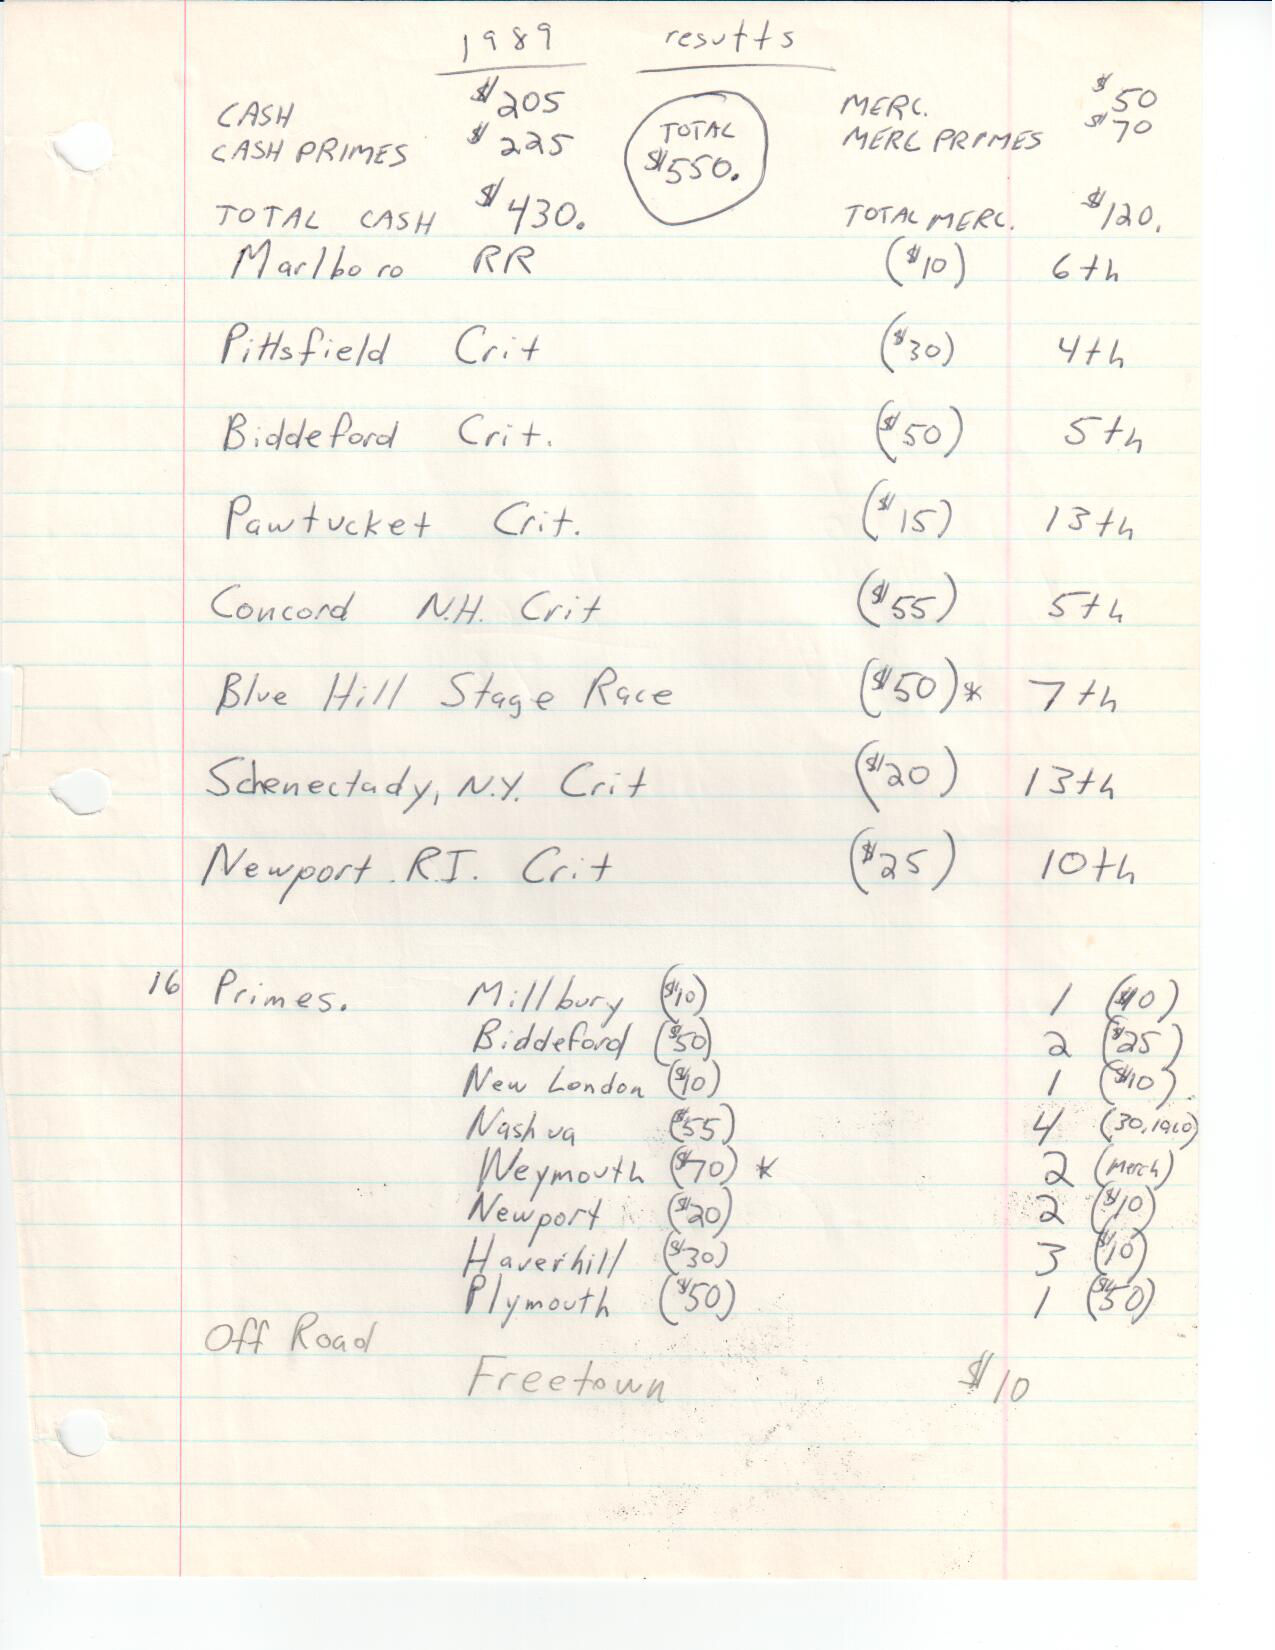 1989 results
CASH $205 MERC. $50
CASH PRIMES $225 TOTAL $550. MERC PRIMES $70
TOTAL CASH $430. TOTAL MERC. $120.
Marlboro RR ($10) 6th
Pittsfield Crit ($30) 4th
Biddeford Crit. ($50) 5th
Pawtucket Crit. ($15) 13th
Concord N.H. Crit ($55) 5th
Blue Hill Stage Race ($50)* 7th
Schenectady, N.Y. Crit ($20) 13th
Newport R.I. Crit ($25) 10th
16 Primes. Millbury ($10) 1 ($10)
Biddeford ($50) 2 ($25)
New London ($10) 1 ($10)
Nashua ($55) 4
Weymouth ($70) * 2 (Merch)
Newport ($20) 2 ($10)
Haverhill ($30) 3 ($10)
Plymouth ($50) 1 ($50)
Off Road
Freetown $10